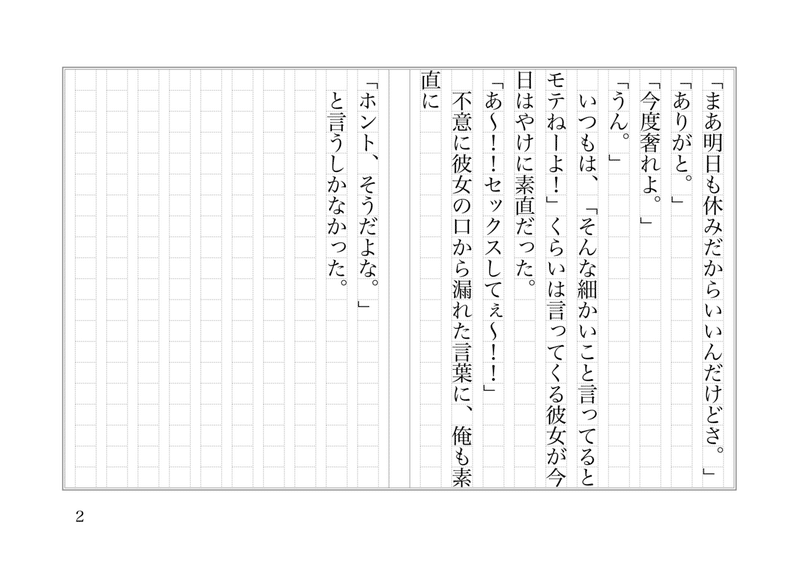 「まあ明日も休みだからいいんだけどさ。」
「ありがと。」
「今度奢れよ。」
「うん。」
いつもは、「そんな細かいこと言ってると
モテねーよ！」くらいは言ってくる彼女が今
日はやけに素直だった。
「あ〜！！セックスしてぇ〜！！」
不意に彼女の口から漏れた言葉に、俺も素
直に
「ホント、そうだよな。」
と言うしかなかった。
2